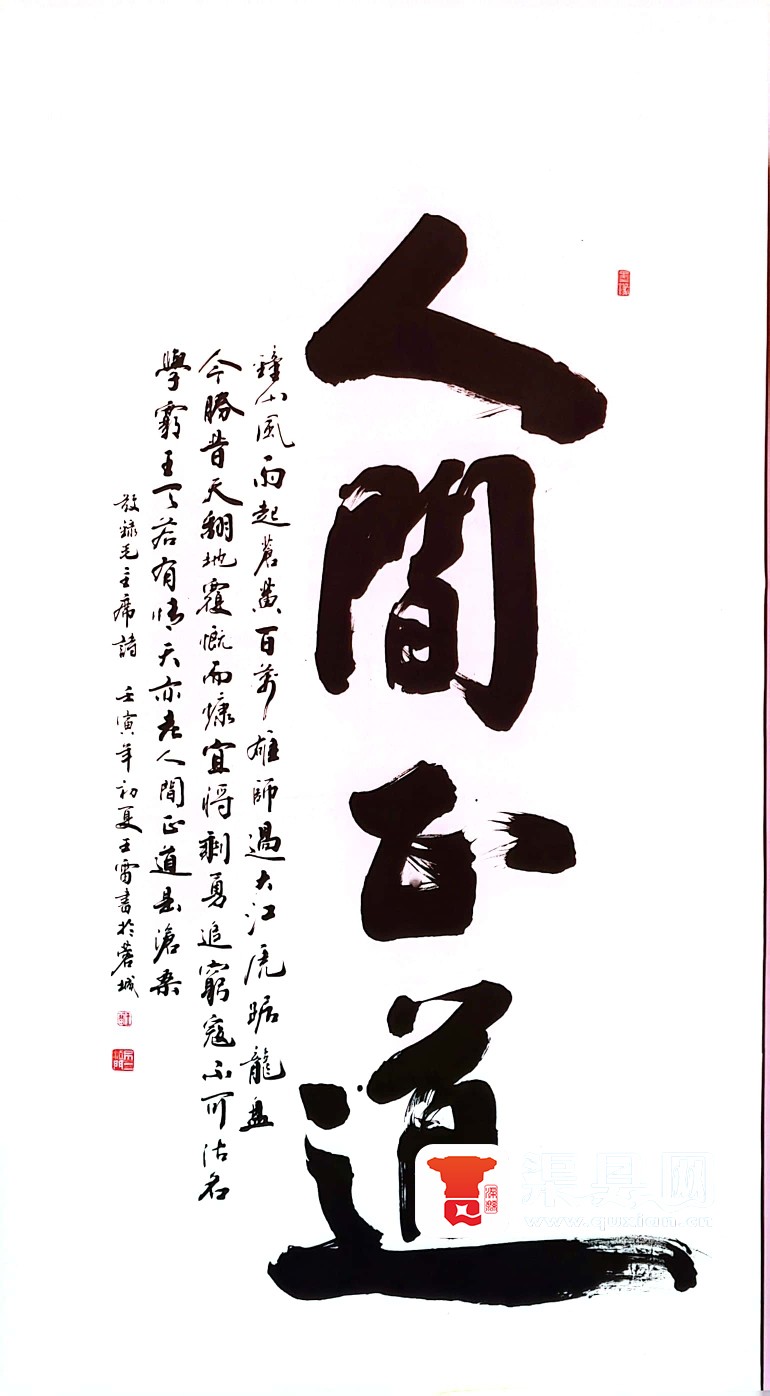 人間正道
鐘山風雨起蒼黃百萬雄師過大江虎踞龍盘
今勝昔天翻地覆慨而慷宜將剩勇追窮寇不可沽名
學霸王天若有情天亦老人間正道是滄桑
敬錄毛主席詩 壬寅年初夏王雷書於蓉城
渠县网
www.quxian.cn